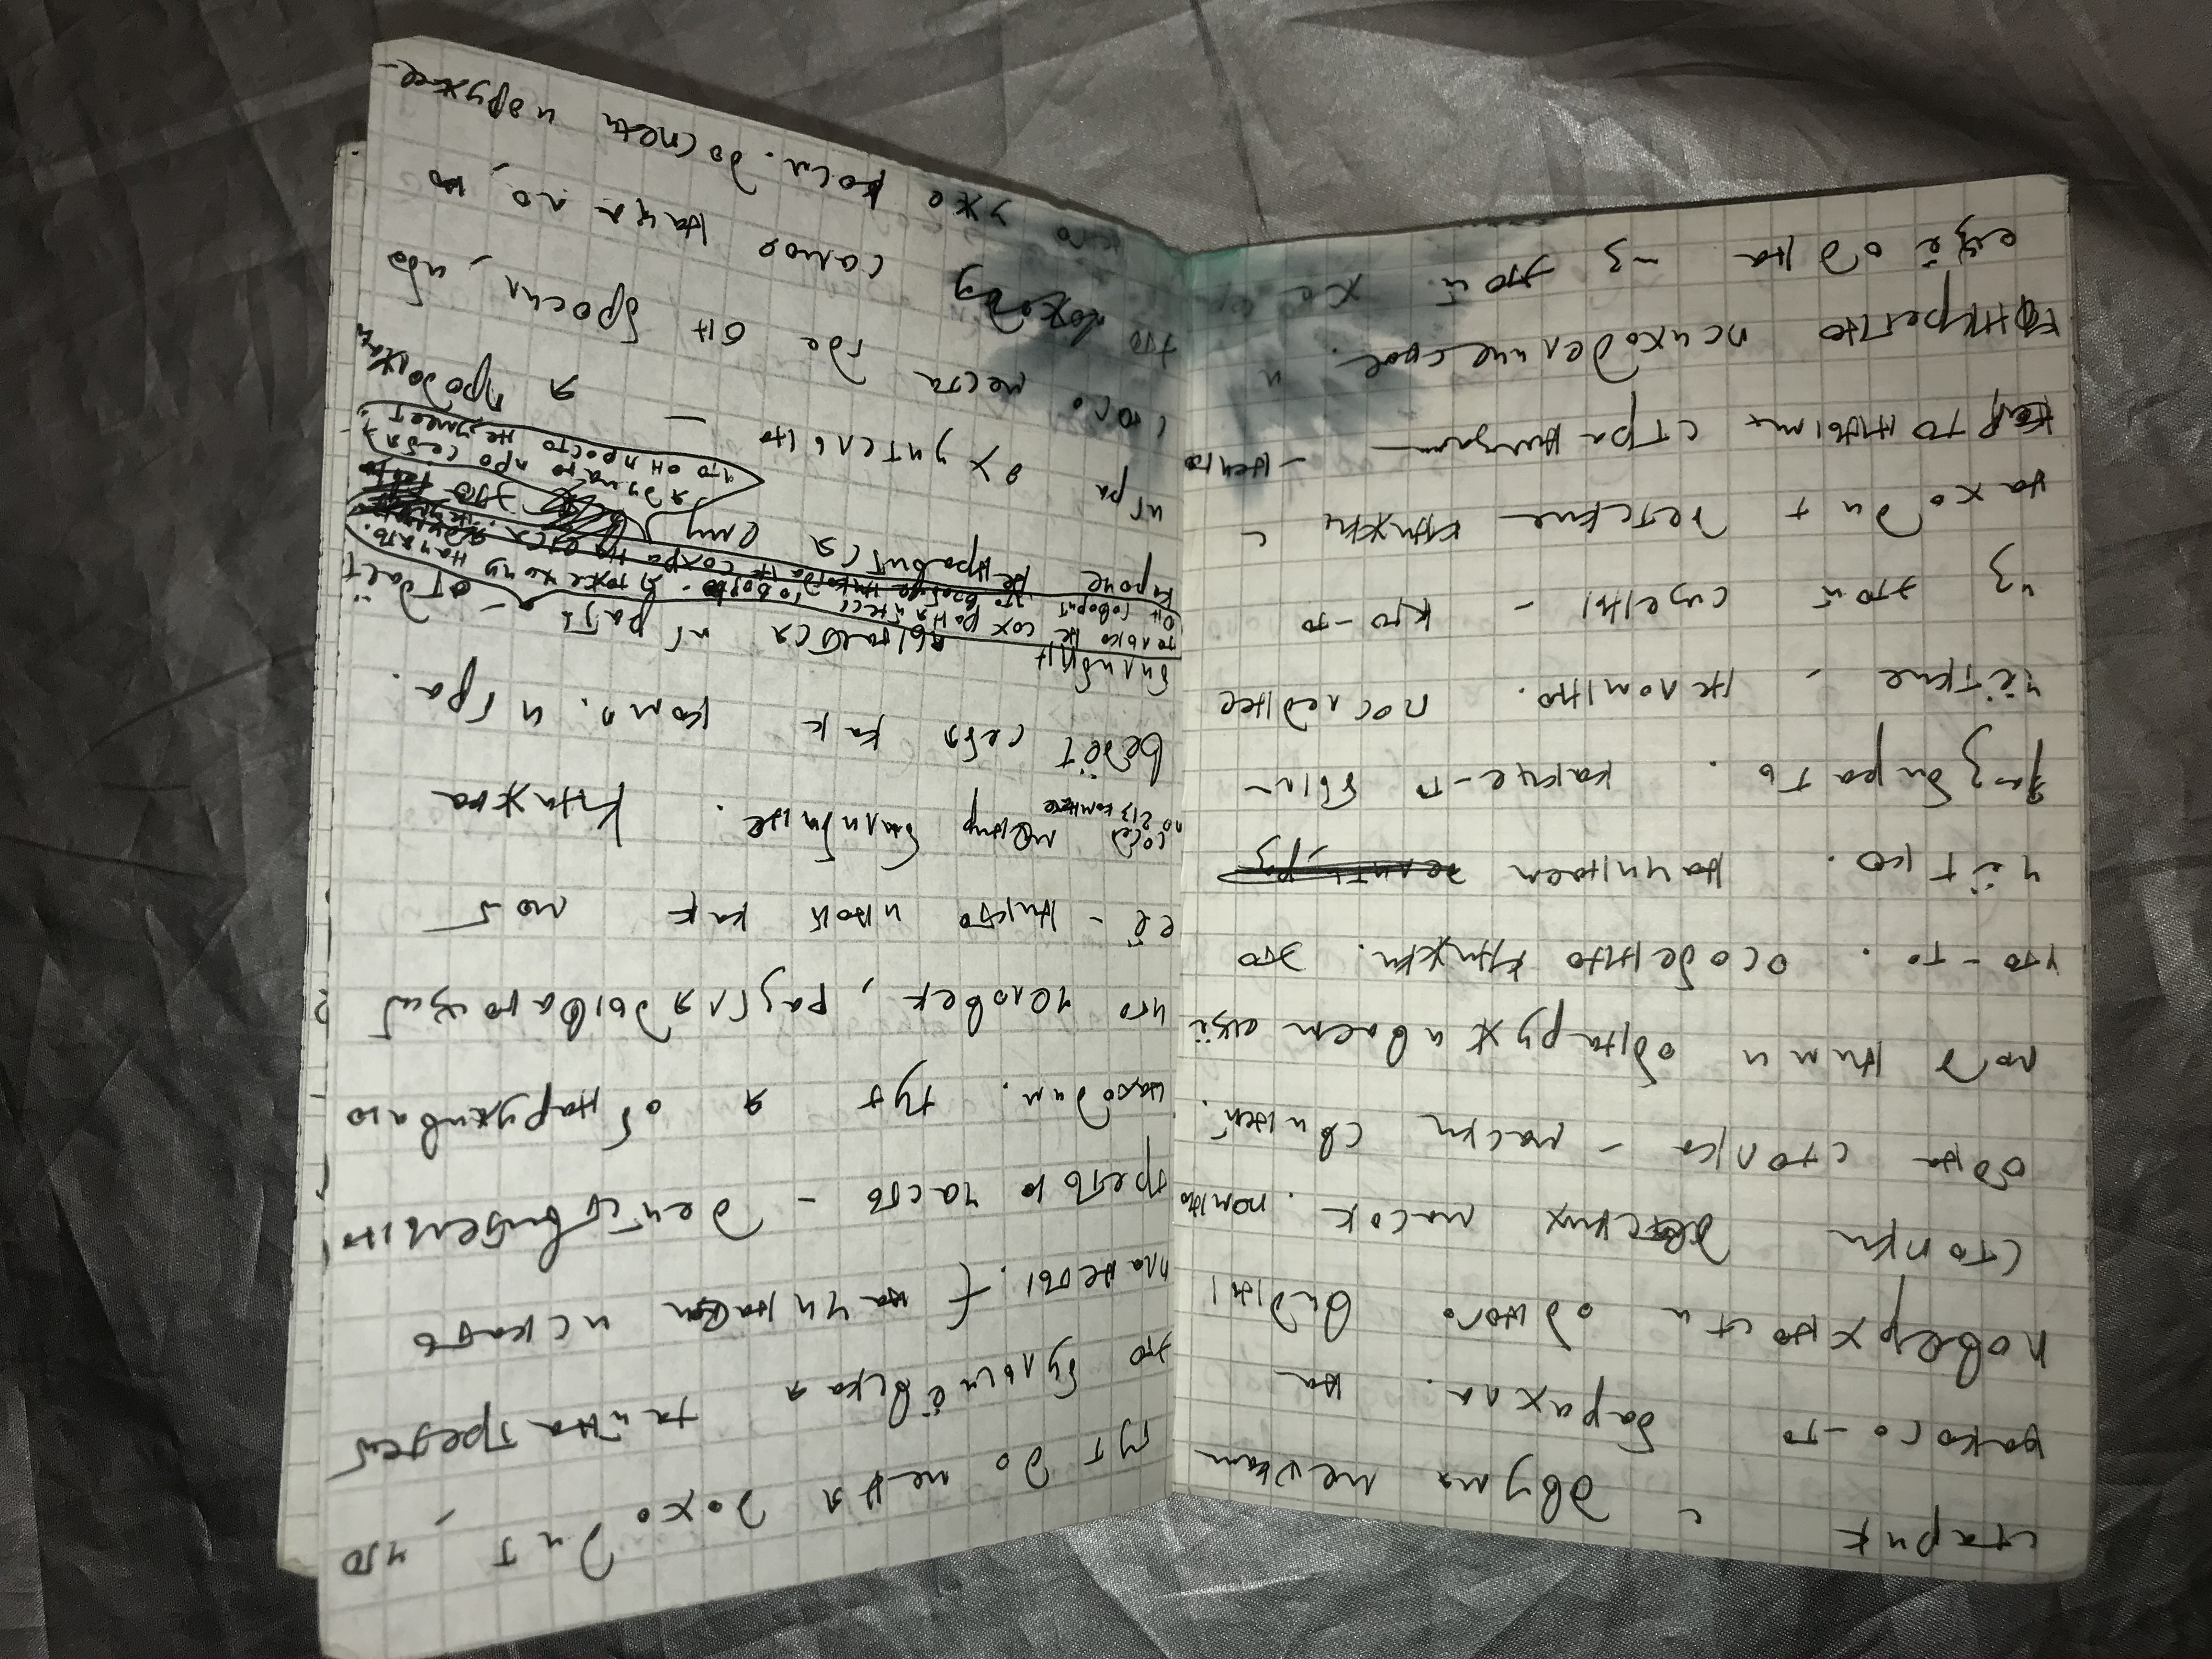 старик с двумя мешками
какого-то барахла. на
поверхности одного видны
стопки детских масок. помню
одна стопка - маски свиней.
под ними обнаруживаем ещё
что-то. особенно книжки. это
чётко. начинаем делить, раз
разбирать. какие-то были
чёткие - не помню. последнее
из этой сцены - кто-то
находит детские книжки с
картонными страницами - нечто
конкретно психоделическое. и
ещё одна из этой же
тут до меня доходит, что
это булычёвская тайна третей
планеты. начинаем искать
третью часть - действительно
находим. тут я обнаруживаю
что человек, разглядывающий
её - никто иной как мой
сосед по 213 комнате билибине. Книжка
ведёт себя как комп. игра.
билибин пытается играть - отдаёт
только не сохраняйтесь говорю - я тоже хочу начать.
он говорит это вообще никогда не сохраняется. я думаю
короче не нравится ему это
я думаю про себя -
что он просто не умеет.
игра охуительна - я продолжаю
с того места где он бросил, ибо
это самое начало, но
уже косм. доспехи и оружие-